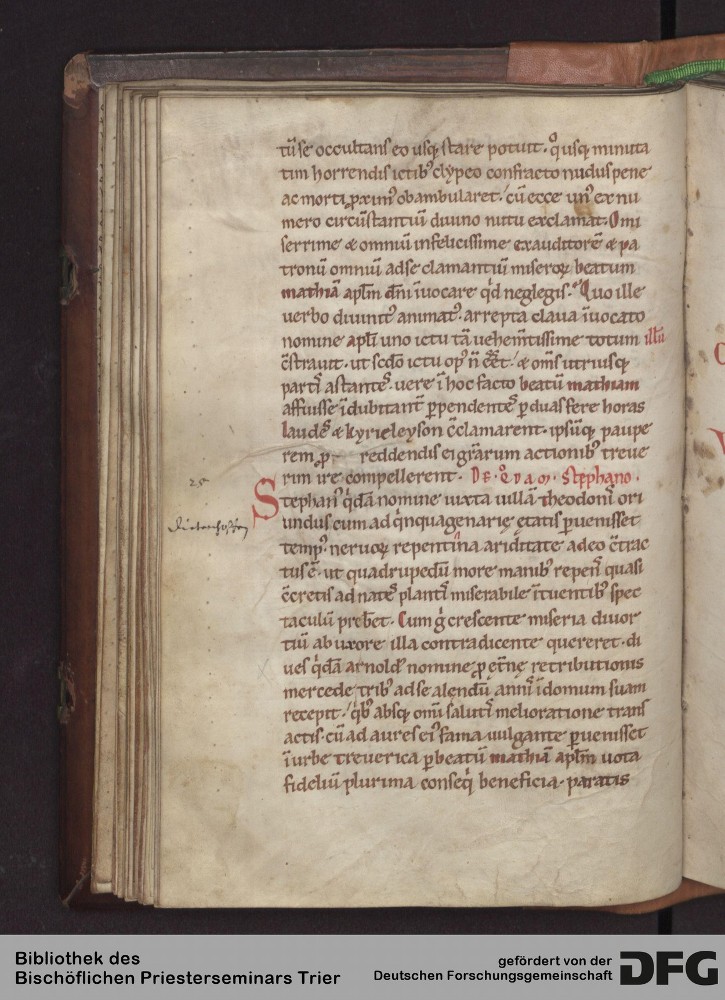 tū se occultans eo usq; stare potuit. qͦusq; minuta
tim horrendis ictib; clẏpeo confracto nudus pene
ac morti ꝓximꝰ obambularet. cū ecce unꝰ ex nu
mero circūstantiū diuino nutu exclamat. O mi
serrime & omniū infelicissime exauditorē & pa
tronū omniū ad se clamantiū miseroꝝ beatum
mathiā apl̄m dn̄i īuocare qͥd neglegis. Quo ille
uerbo diuinitꝰ animatꝰ. arrepta claua īuocato
nomine apl̄i uno ictu tā uehem̄tissime totum illū
cͦstrauit. ut scd̄o ictu opꝰ n̄ eēt. & om̄s utriusq;
partis astantes. uere ī hoc facto beatū mathiam
affuisse īdubitant ꝑpendentes ꝑ duas fere horas
laudes & kyrieleyson c̄clamarent. ipsūq; paupe
rem ꝓ reddendis ei gr̄arum actionib; treue
rim ire compellerent. DE. QͦVDAM. Stephano.
25
Stephanꝰ qͥdā nomine iuxta uillā theodonis ori
undus cum ad qͥnquagenarię ętatis ꝑuenisset
tempꝰ. neruoꝝ repentina ariditate adeo c̄trac
tus ē. ut quadrupedū more manib; repens quasi
c̄cretis ad nates plantis miserabile ītuentib; spec
taculū preb̄et. Cum gͥ crescente miseria diuor
tiū ab uxore illa contradicente quereret. di
ues qͥdā arnoldꝰ nomine ꝓ et̄nę retributionis
mercede tribꝰ ad se alendū annis ī domum suam
recepit. qͥb; absq; omi salutis melioratione trans
actis. cū ad aures eiꝰ fama uulgante ꝑuenisset
ī urbe treuerica ꝑ beatū mathiā apl̄m uota
fideliū plurima conseqͥ beneficia. paratis
Bibliothek des
Bischöflichen Priesterseminars Trier
gefördert von der
Deutschen Forschungsgemeinschaft
DFG